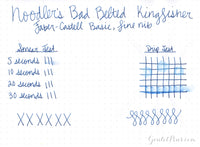 Noodler's Bad Belted Kingfisher
Faber-Castell Basic, fine nib
Smear Test
Drip Test
5 seconds
10 seconds
20 seconds
30 seconds
XXXXXX